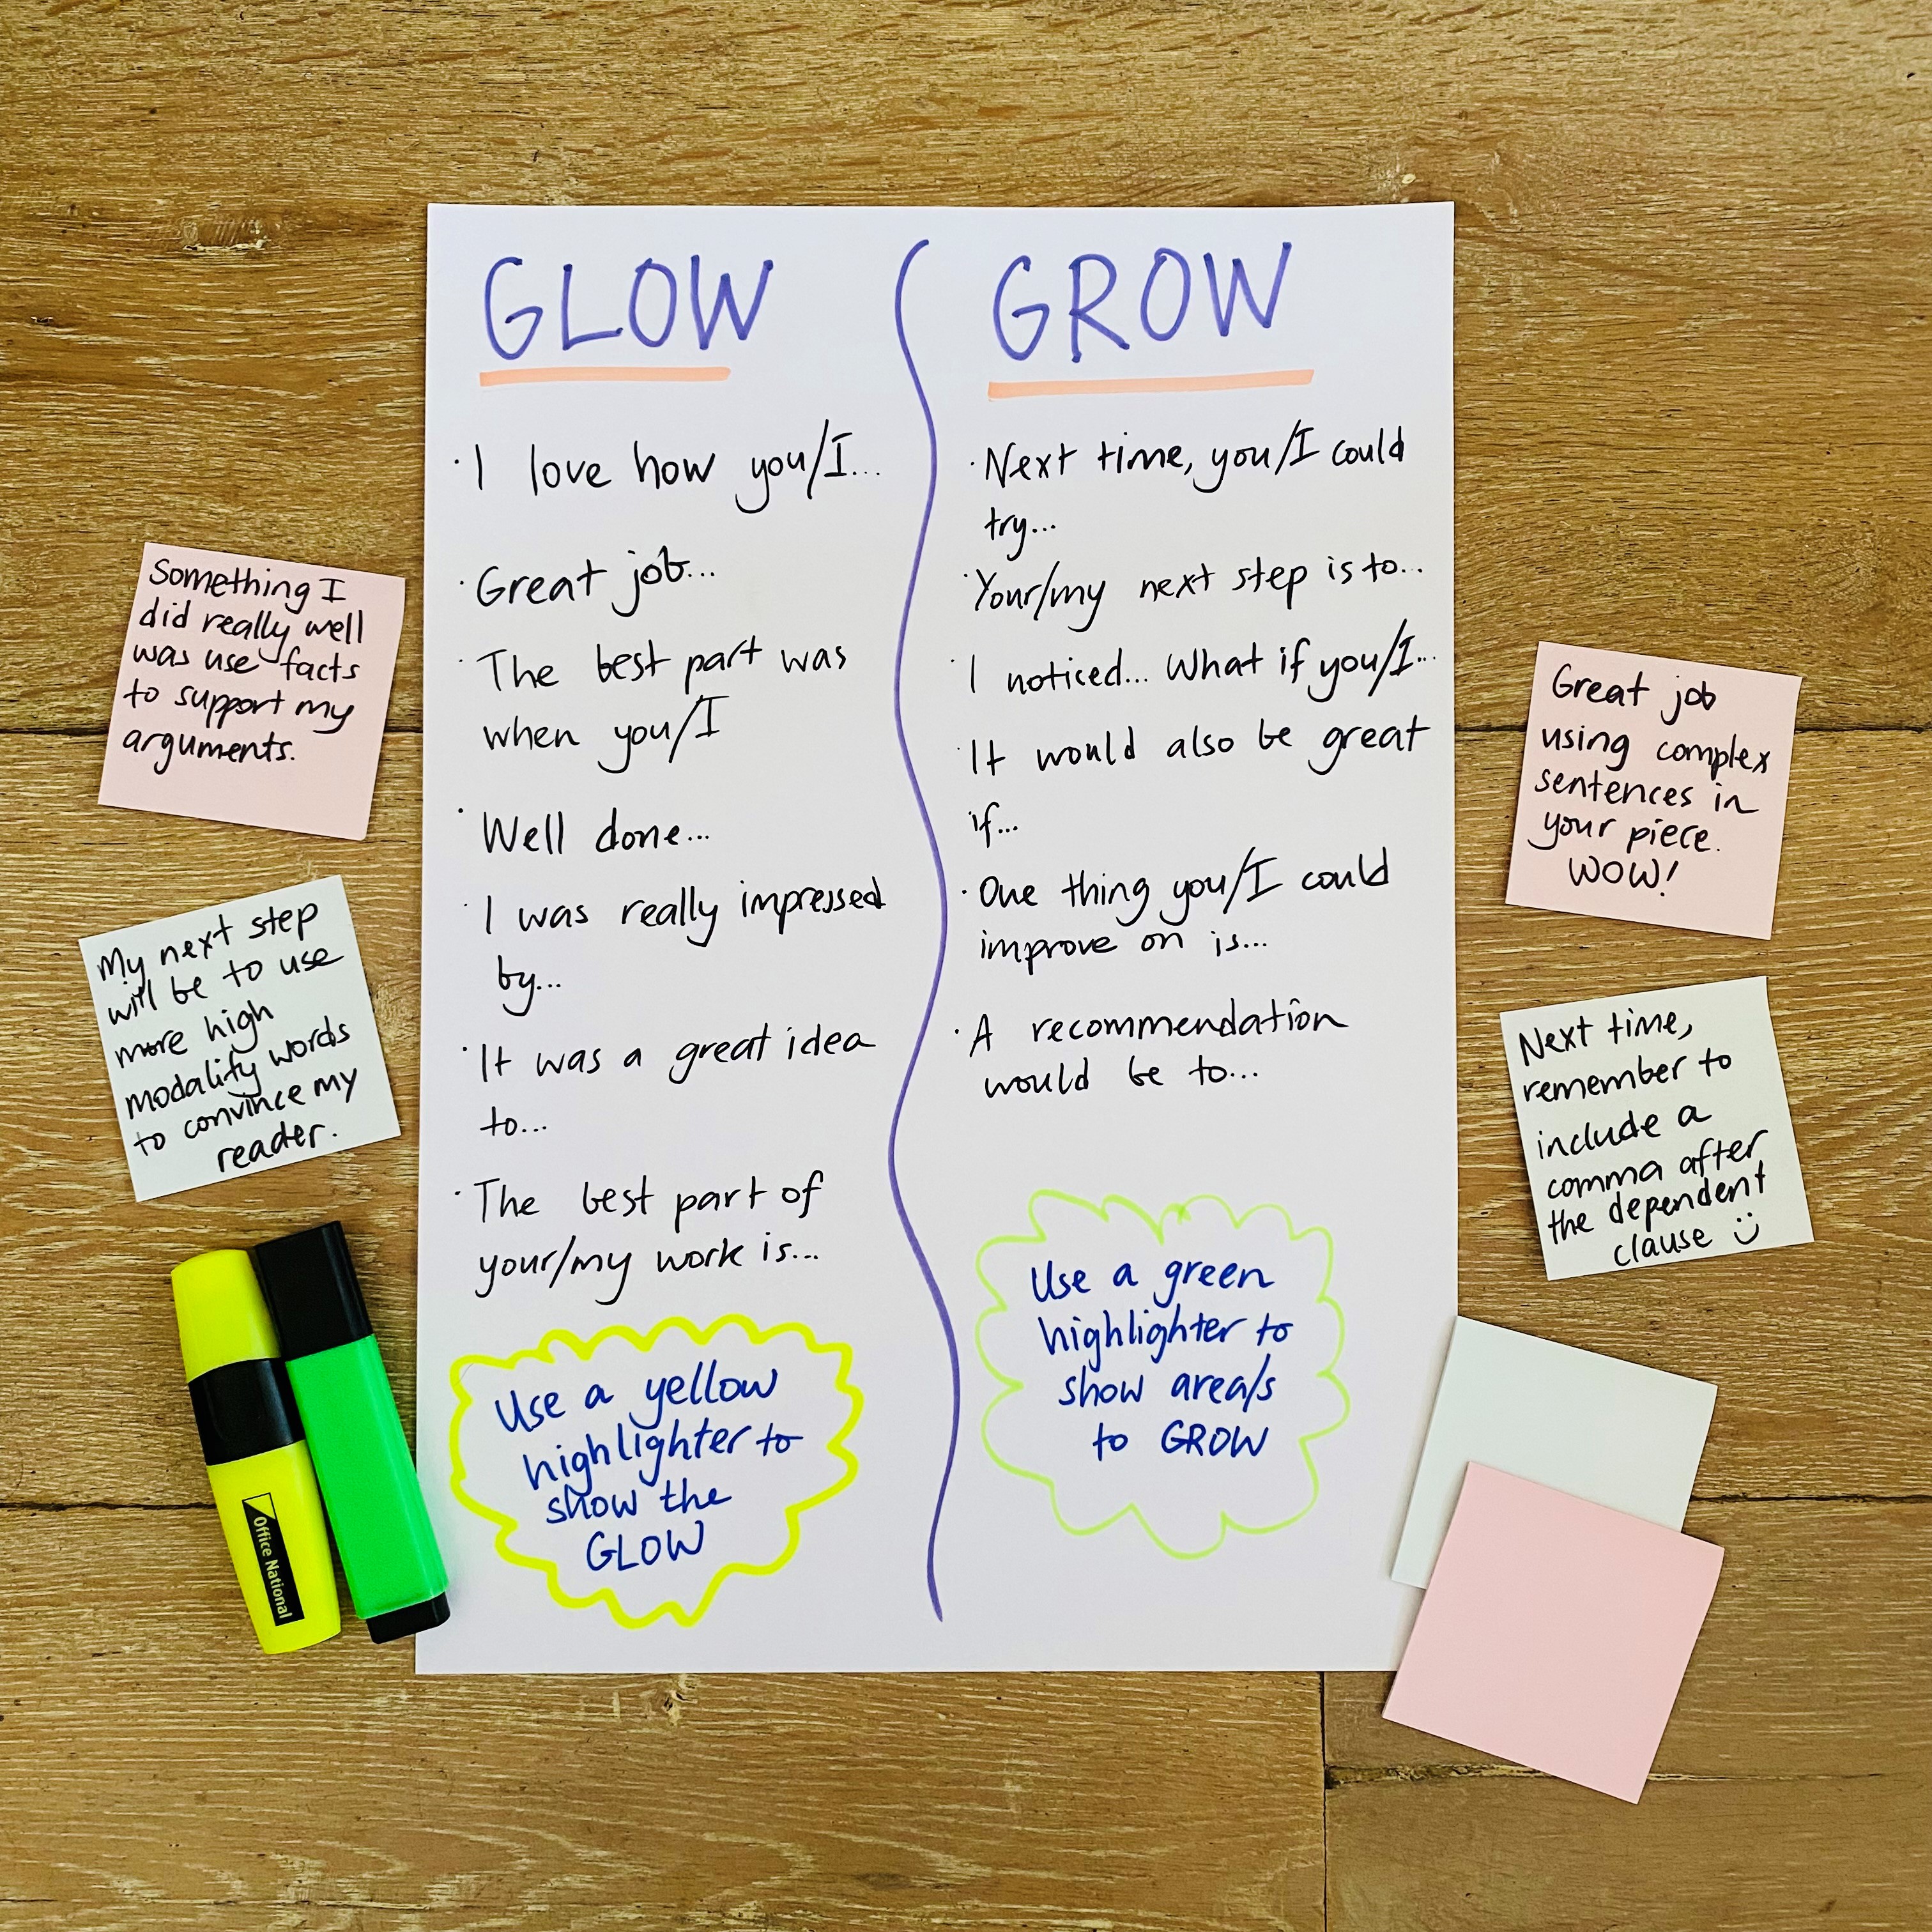 GLOW
· I love how you/I...
· Great job...
· The best part was
when you/I
· Well done...
· I was really impressed
by...
· It was a great idea
to...
· The best part of
your/my work is...
Use a yellow
highlighter to
show the
GLOW
GROW
· Next time, you/I could
try...
· Your/my next step is to...
· I noticed... What if you/I...
· It would also be great
if...
· One thing you/I could
improve on is...
· A recommendation
would be to...
Use a green
highlighter to
show area/s
to GROW
Something I
did really well
was use facts
to support my
arguments.
My next step
will be to use
more high
modality words
to convince my
reader.
Office National
Great job
using complex
sentences in
your piece.
WOW!
Next time,
remember to
include a
comma after
the dependent
clause ü